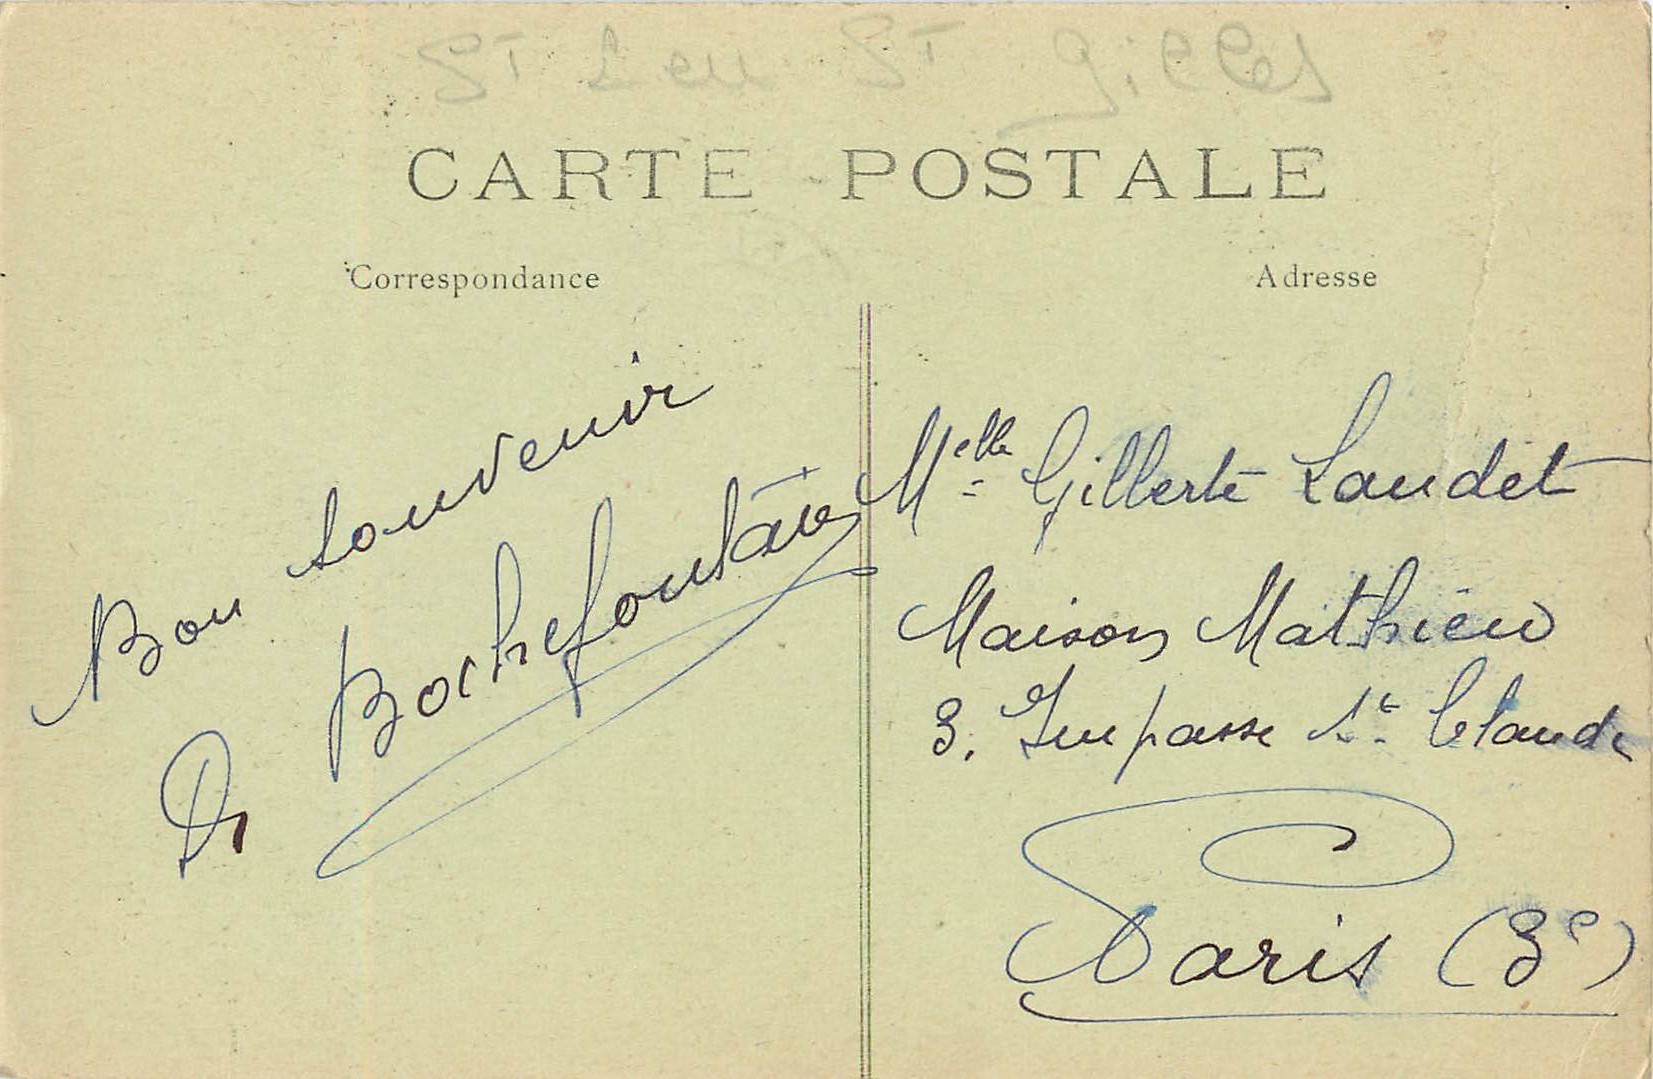 St Leu St Gilles
CARTE POSTALE
Correspondance
Adresse
Bon souvenir
Dr Bochefontaine
Melle Gilberte Laudet
Maison Mathieu
3. Impasse St Claude
Paris (3e)